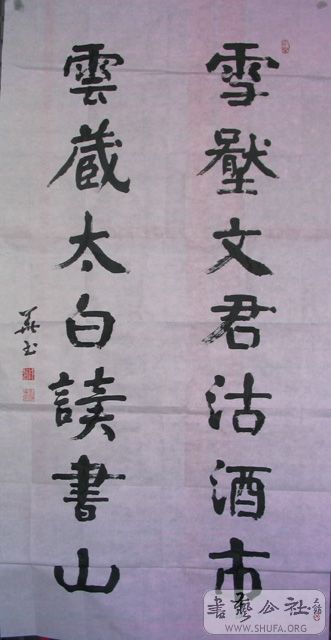 雪壓文君沽酒市
雲藏太白讀書山
書藝公社
WWW.SHUFA.ORG